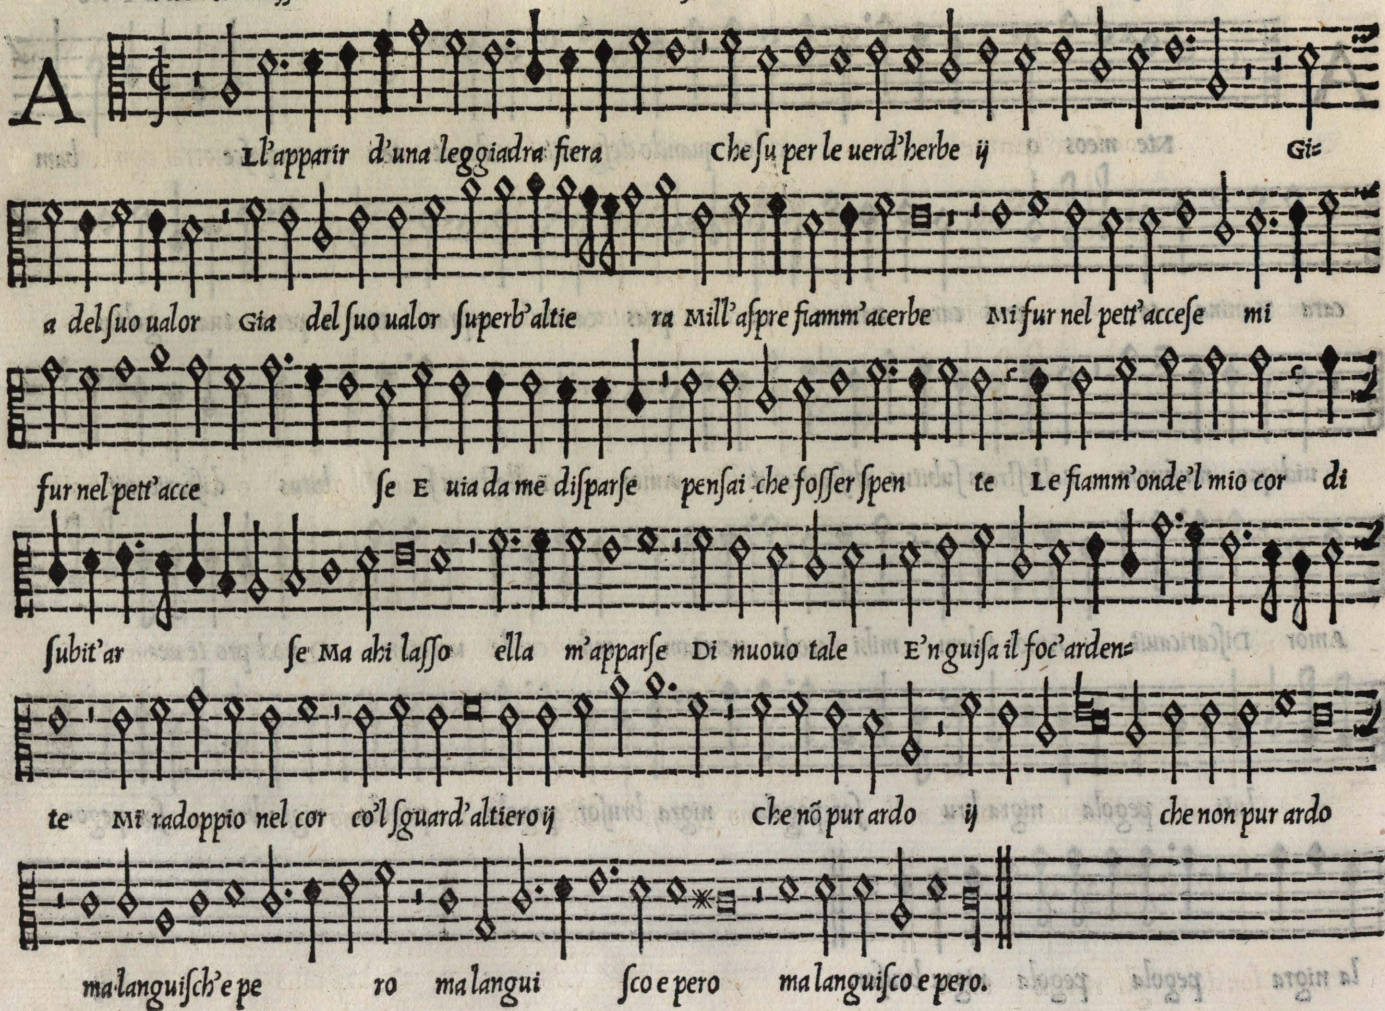 All'apparir d'una leggiadra fiera Che su per le uerd'herbe ij Gi=
a del suo ualor Gia del suo ualor superb'altie ra Mill'aspre fiamm'acerbe Mi fur nel pett'accese mi
fur nel pett'acce se E uia da me disparse pensai che fosser spen te Le fiamm'onde'l mio cor di
subit'ar se Ma ahi lasso ella m'apparse Di nuouo tale E'n guisa il foc'arden=
te Mi radoppio nel cor co'l sguard'altiero ij Che nõ pur ardo ij che non pur ardo
ma languisch'e pe ro ma langui sco e pero ma languisco e pero.